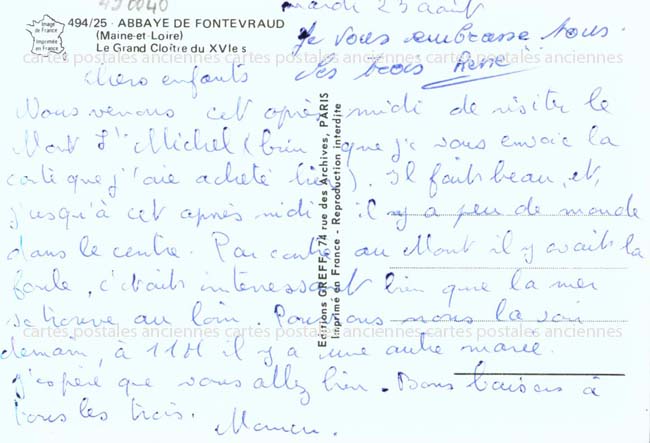 mardi 23 août
494/25 - ABBAYE DE FONTEVRAUD
(Maine-et-Loire)
Le Grand Cloître du XVIe s
Image de France
Imprimée en France
Je vous embrasse tous
les trois René
cartes postales anciennes cartes postales anciennes cartes postales anciennes
Chers enfants
Nous venons cet après midi de visiter le
Mont St Michel (bien que je vous envoie la
carte que j'aie acheté hier). Il fait beau, et,
jusqu'à cet après midi il y a peu de monde
dans le centre. Par contre au Mont il y avait la
foule, c'était intéressant bien que la mer
se trouve au loin. Pourrons nous la voir
cartes postales anciennes cartes postales anciennes cartes postales anciennes
demain, à 11H il y a une autre marée.
J'espère que vous allez bien. Bons baisers à
tous les trois.
Maman.
Editions GREFF, 74 rue des Archives, PARIS
Imprimé en France - Reproduction interdite